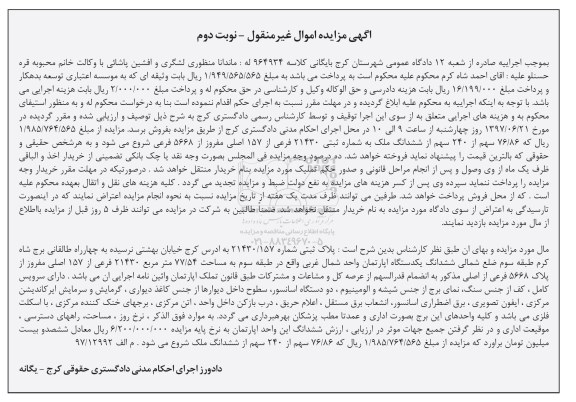 اگهی مزایده اموال غیرمنقول - نوبت دوم
بموجب اجراییه صادره از شعبه ۱۲ دادگاه عمومی شهرستان کرج بایگانی کلاسه ۹۶۴۹۳۴ له : ماندانا منظوری لشگری و افشین پاشائی با وکالت خانم محبوبه قره
حسنلو علیه : اقای احمد شاه کرم محکوم علیه محکوم است به پرداخت می باشد به مبلغ ۱/۹۴۹/۵۶۵/۵۶۵ ریال بابت وثیقه ای که به موسسه اعتباری توسعه بدهکار
و پرداخت مبلغ ۱۶/۱۹۹/۰۰۰ ریال بابت هزینه دادرسی و حق الوکاله وکیل و کارشناسی در حق محکوم له و پرداخت مبلغ ۲/۰۰۰/۰۰۰ ریال بابت هزینه اجرایی می
باشد. با توجه به اینکه اجراییه به محکوم علیه ابلاغ گردیده و در مهلت مقرر نسبت به اجرای حکم اقدام ننموده است بنا به درخواست محکوم له و به منظور استیفای
محکوم به و هزینه های اجرایی متعلق به از سوی این اجرا توقیف و توسط کارشناس رسمی دادگستری کرج به شرح ذیل توصیف و ارزیابی شده و مقرر گردیده در
مورخ ۱۳۹۷/۰۶/۲۱ روز چهارشنبه از ساعت ۹ الی ۱۰ در محل اجرای احکام مدنی دادگستری کرج از طریق مزایده بفروش برسد. مزایده از مبلغ ۱/۹۸۵/۷۶۴/۵۶۵
ریال که ۷۶/۸۶ سهم از ۲۴۰ سهم از ششدانگ ملک به شماره ثبتی ۲۱۴۳۰ فرعی از ۱۵۷ اصلی مفروز از ۵۶۶۸ فرعی شروع می شود و به هرشخص حقیقی و
حقوقی که بالترین قیمت را پیشنهاد نماید فروخته خواهد شد. ده درصد وجه مزایده فی المجلس بصورت وجه نقد یا چک بانکی تضمینی از خریدار اخذ و الباقی
ظرف یک ماه از وی وصول و پس از انجام مراحل قانونی و صدور حکم تملیک مورد مزایده بنام خریدار منتقل خواهد شد . درصورتیکه در مهلت مقرر خریدار وجه
مزایده را پرداخت ننماید سپرده وی پس از کسر هزینه های مزایده به نفع دولت ضبط و مزایده تجدید می گردد . کلیه هزینه های نقل و انتقال بعهده محکوم علیه
است . که از محل فروش پرداخت خواهد شد. طرفین می توانند ظرف مدت یک هفته از تاریخ مزایده نسبت به نحوه انجام مزایده اعتراض نمایند که در اینصورت
تارسیدگی به اعتراض از سوی دادگاه مورد مزایده به نام خریدار منتقل نخواهد شد. ضمنا طالبین به شرکت در مزایده می توانند ظرف ۵ روز قبل از مزایده بااطلاع
از مال مورد مزایده بازدید نمایند.
مال مورد مزایده و بهای ان طبق نظر کارشناس بدین شرح است : پلاک ثبتی شماره ۲۱۴۳۰/۱۵۷ به ادرس کرج خیابان بهشتی نرسیده به چهارراه طالقانی برج شاه
کرم طبقه سوم ضلع شمالی ششدانگ یکدستگاه اپارتمان واحد شمال غربی واقع در طبقه سوم به مساحت ۷۷/۵۴ متر مربع ۲۱۴۳۰ فرعی از ۱۵۷ اصلی مفروز از
پلاک ۵۶۶۸ فرعی از اصلی مذکور به انضمام قدرالسهم از عرصه کل و مشاعات و مشترکات طبق قانون تملک اپارتمان وائین نامه اجرایی ان می باشد . دارای سرویس
کامل ، کف از جنس سنگ، نمای برج از جنس شیشه و الومینیوم ، دو دستگاه اسانسور، سطوح داخل دیوارها از جنس کاغذ دیواری ، گرمایش و سرمایش ایرکاندیشن
مرکزی ، ایفون تصویری ، برق اضطراری اسانسور، انشعاب برق مستقل ، اعلام حریق ، درب بازکن داخل واحد ، انتن مرکزی ، برجهای خنک کننده مرکزی ، با اسکلت
فلزی می باشد و کلیه واحدهای این برج بصورت اداری و عمدتا مطب پزشکان بهرهبرداری می گردد. به موارد فوق الذکر ، نرخ روز ، مساحت، راههای دسترسی ،
موقعیت اداری و در نظر گرفتن جمیع جهات موثر در ارزیابی ، ارزش ششدانگ این واحد اپارتمان به نرخ پایه مزایده ۶/۲۰۰/۰۰۰/۰۰۰ ریال معادل ششصدو بیست
میلیون تومان براورد که مزایده از مبلغ ۱/۹۸۵/۷۶۴/۵۶۵ ریال که ۷۶/۸۶ سهم از ۲۴۰ سهم از ششدانگ ملک شروع می شود . م الف ۹۷/۱۲۹۹۲
دادورز اجرای احکام مدنی دادگستری حقوقی کرج - یگانه